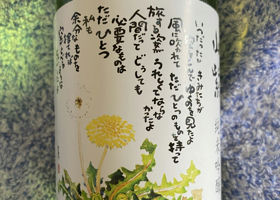 いつだったか
きみたちが
ゆくのを見たよ
風に吹かれて
ただひとつのものを持って
旅する姿が
うれしくてならなかったよ
人間だって どうしても
必要なものは
ただひとつ
私も
余分なものを